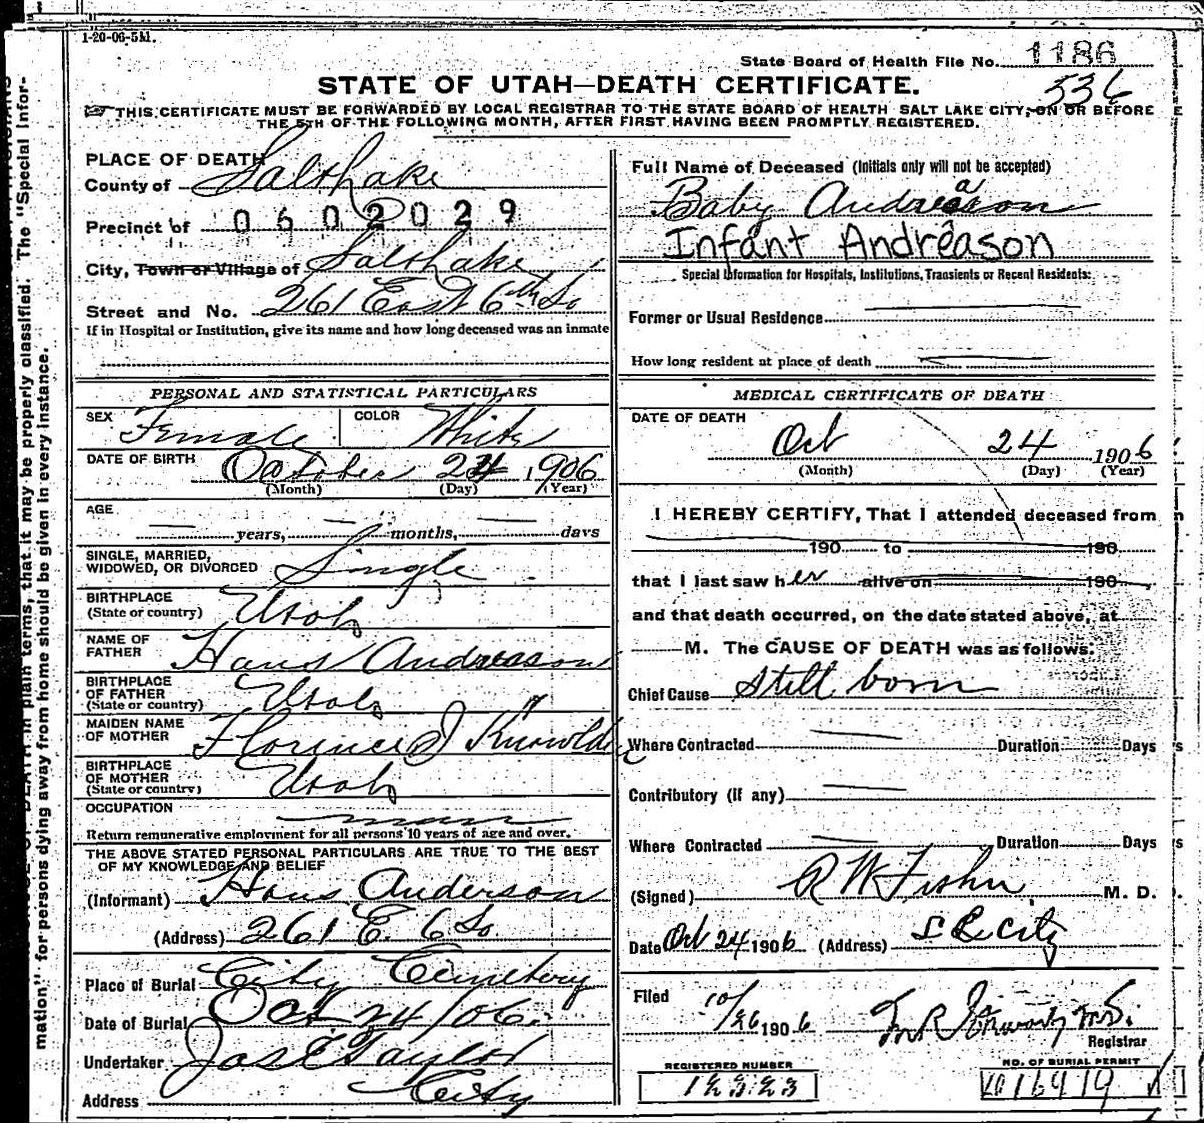 1-20-06-5M.
State Board of Health File No. 1186
536
STATE OF UTAH—DEATH CERTIFICATE.
THIS CERTIFICATE MUST BE FORWARDED BY LOCAL REGISTRAR TO THE STATE BOARD OF HEALTH SALT LAKE CITY, ON OR BEFORE
THE 5TH OF THE FOLLOWING MONTH, AFTER FIRST HAVING BEEN PROMPTLY REGISTERED.
PLACE OF DEATH
County of Salt Lake
Precinct of 0602029
City, Town or Village of Salt Lake
Street and No. 261 East 6th So
If in Hospital or Institution, give its name and how long deceased was an inmate
Full Name of Deceased (Initials only will not be accepted)
Baby Andreason
Infant Andreason
Special Information for Hospitals, Institutions, Transients or Recent Residents:
Former or Usual Residence
How long resident at place of death
PERSONAL AND STATISTICAL PARTICULARS
SEX Female COLOR White
DATE OF BIRTH October 24 1906
(Month) (Day) (Year)
AGE
years, months, days
SINGLE, MARRIED,
WIDOWED, OR DIVORCED Single
BIRTHPLACE
(State or country) Utah
NAME OF
FATHER Hans Andreason
BIRTHPLACE
OF FATHER
(State or country) Utah
MAIDEN NAME
OF MOTHER Florence J
BIRTHPLACE
OF MOTHER
(State or country) Utah
OCCUPATION
Return remunerative employment for all persons 10 years of age and over.
THE ABOVE STATED PERSONAL PARTICULARS ARE TRUE TO THE BEST
OF MY KNOWLEDGE AND BELIEF
(Informant) Hans Anderson
(Address) 261 E. 6 So
Place of Burial City Cemetery
Date of Burial Oct 24/06.
Undertaker Jas E Taylor
Address City
MEDICAL CERTIFICATE OF DEATH
DATE OF DEATH
Oct 24 1906
(Month) (Day) (Year)
I HEREBY CERTIFY, That I attended deceased from
190 to 190
that I last saw her alive on 190
and that death occurred, on the date stated above, at
M. The CAUSE OF DEATH was as follows:
Chief Cause Still born
Where Contracted Duration Days
Contributory (if any)
Where Contracted Duration Days
(Signed) R W Fisher M. D.
Date Oct 24 1906 (Address) S L City
Filed 10/26 1906
Registrar
REGISTERED NUMBER
12323
NO. OF BURIAL PERMIT
16919
mation" for persons dying away from home should be given in every instance.
DEATH in plain terms, that it may be properly classified. The "Special Infor-